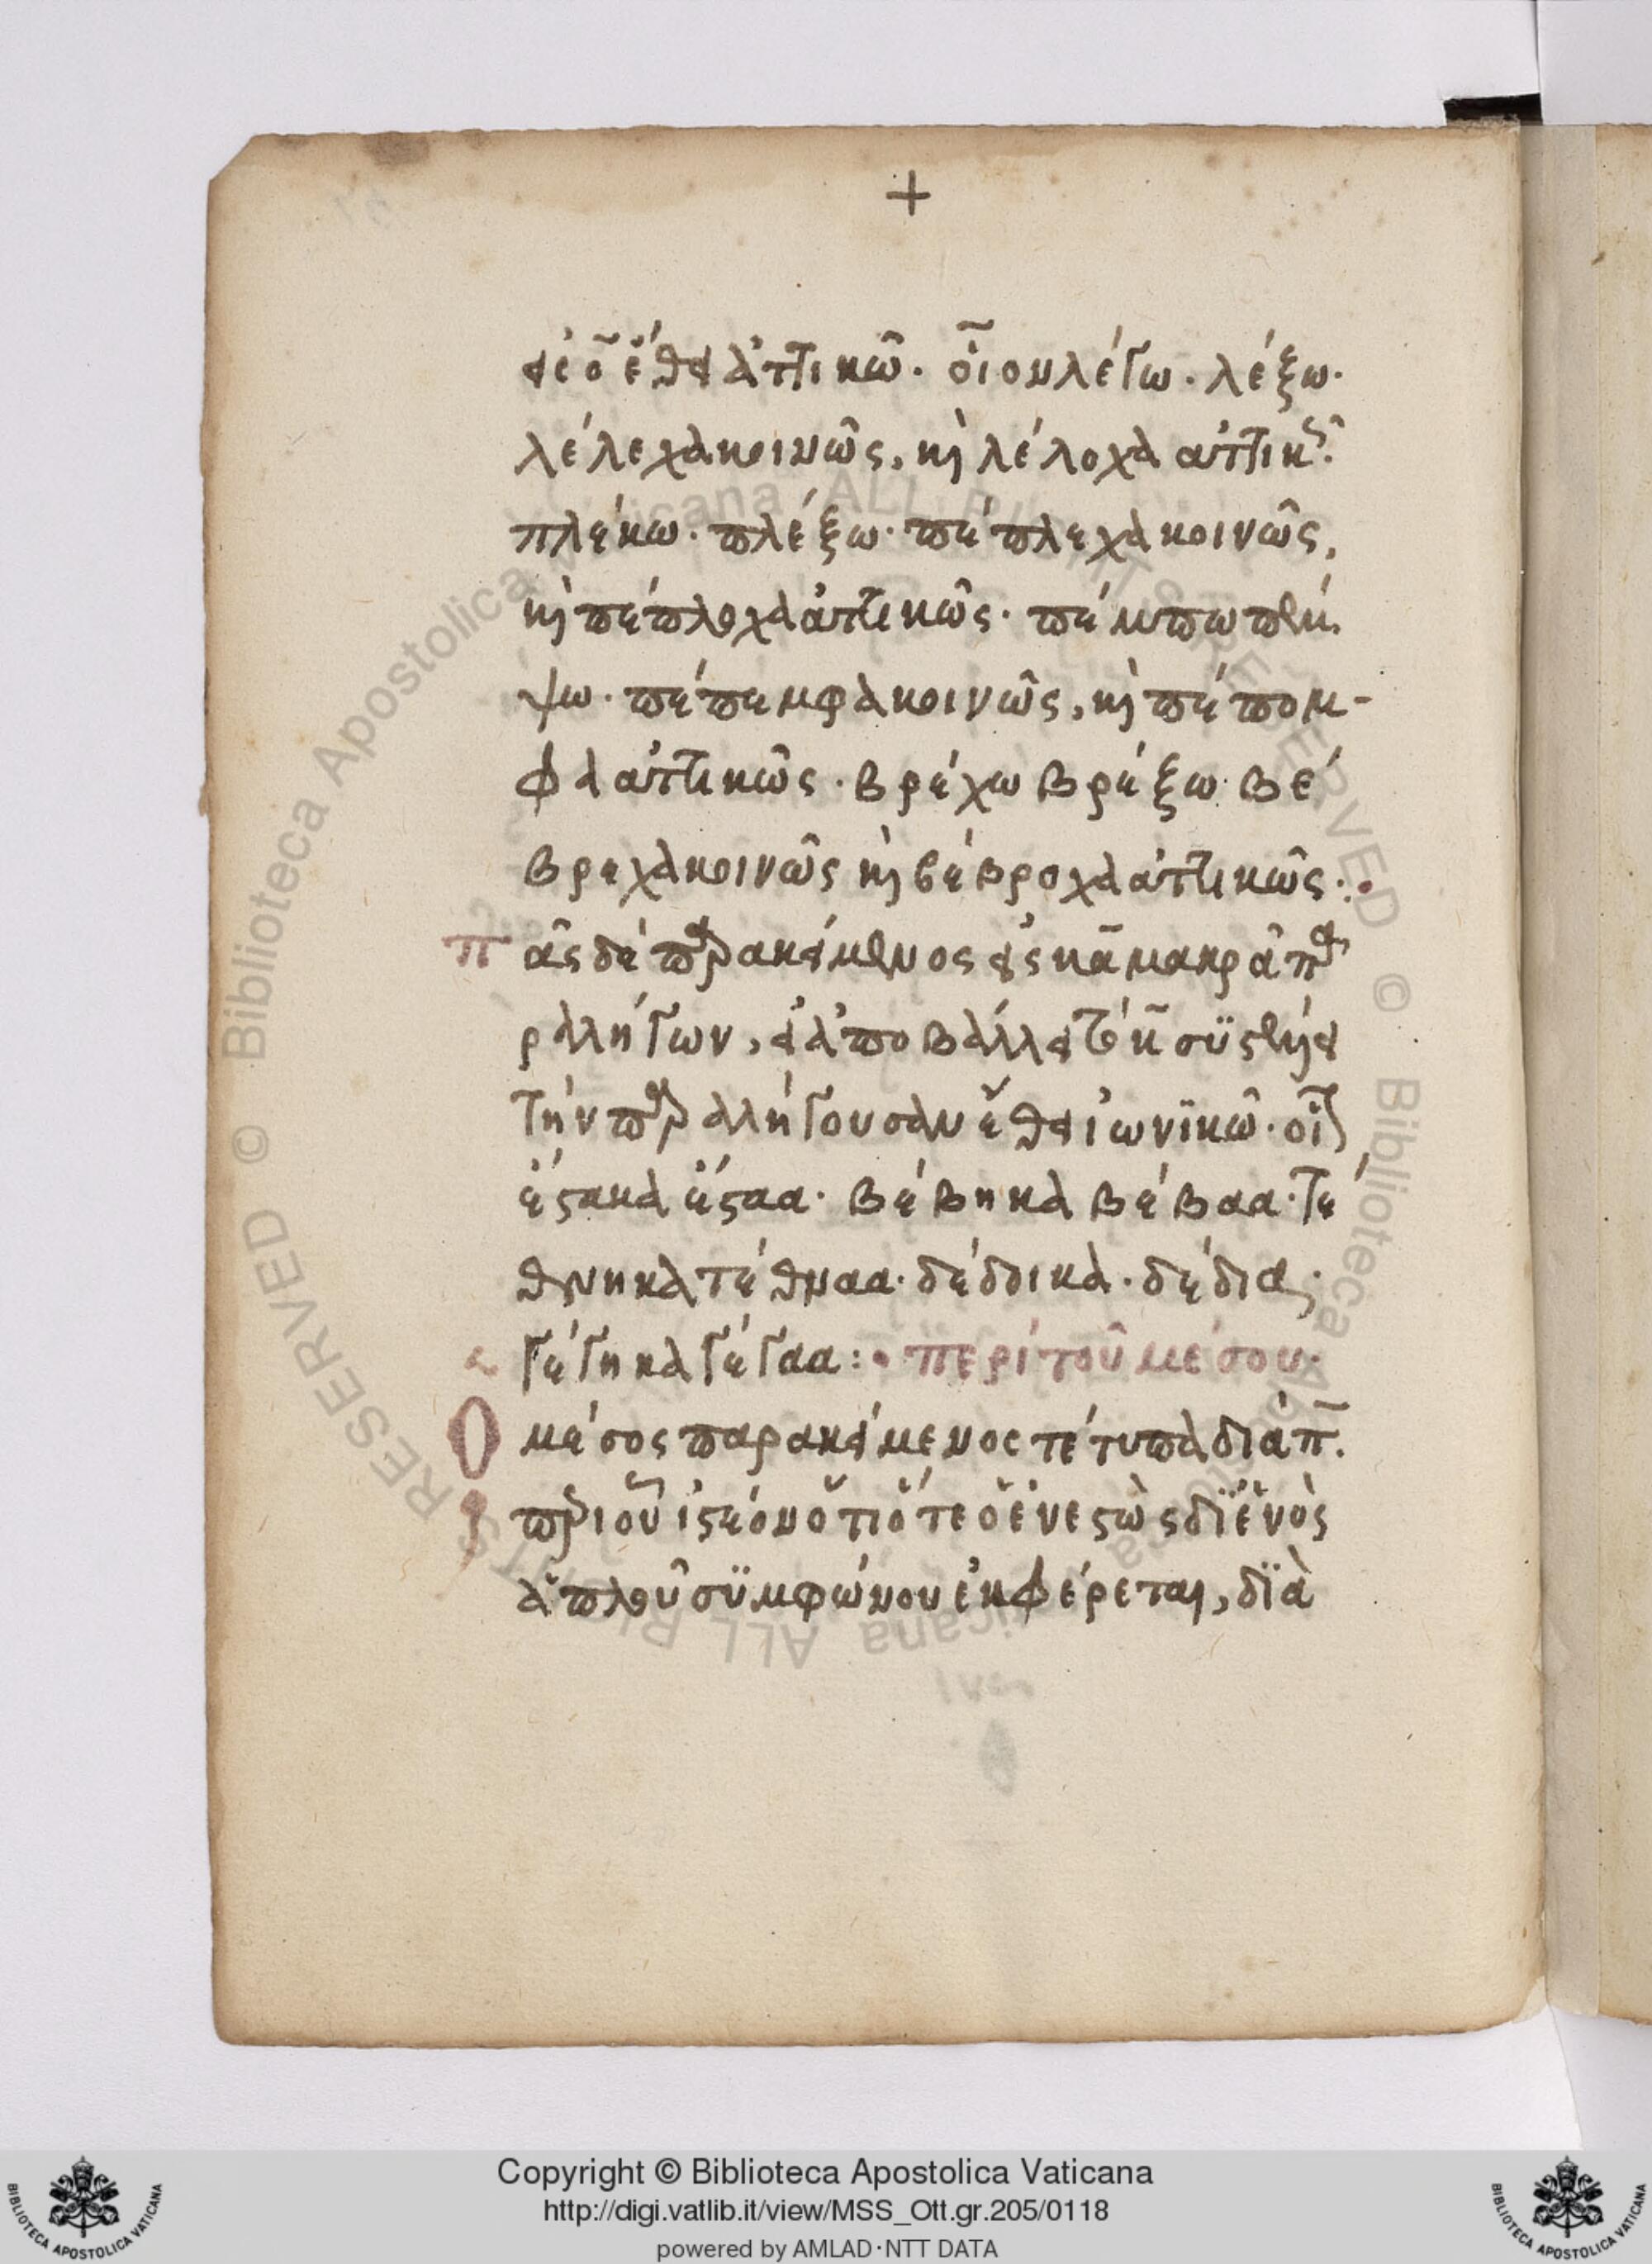 +
εἰ ὃ ἔθει ἀττικῶ. οἷον λέγω. λέξω.
λέλεχα κοινῶς, κὶ λέλοχα ἀττικ
πλέκω. πλέξω. πέπλεχα κοινῶς,
κὶ πέπλοχα ἀττικῶς. πέμπω πέμ
ψω. πέπεμφα κοινῶς, κὶ πέπομ-
φα ἀττικῶς. βρέχω βρέξω βέ
βρεχα κοινῶς κὶ βέβροχα ἀττικῶς.
πᾶς δὲ παρακείμενος εἰς κα μακρᾶ π
ραλήγων, ἀποβάλλει τὸ κ συστέλλει
τὴν παραλήγουσαν ἔθει ἰωνϊκῶ. οἷον
ἕστακα ἕσταα. βέβηκα βέβαα. τέ
θνηκα τέθναα. δέδοικα. δέδια.
γέγηκα γέγαα: περὶ τοῦ μέσου.
Ο μέσος παρακείμενος τέτυπα διὰ π.
περὶ οὗ ἰστέον ὅτι ὅτε ὁ ἐνεστὼς δϊ ἑνὸς
ἁπλοῦ συμφώνου ἐκφέρεται, δϊὰ
Copyright © Biblioteca Apostolica Vaticana
http://digi.vatlib.it/view/MSS_Ott.gr.205/0118
powered by AMLAD·NTT DATA
BIBLIOTECA APOSTOLICA VATICANA
BIBLIOTECA APOSTOLICA VATICANA